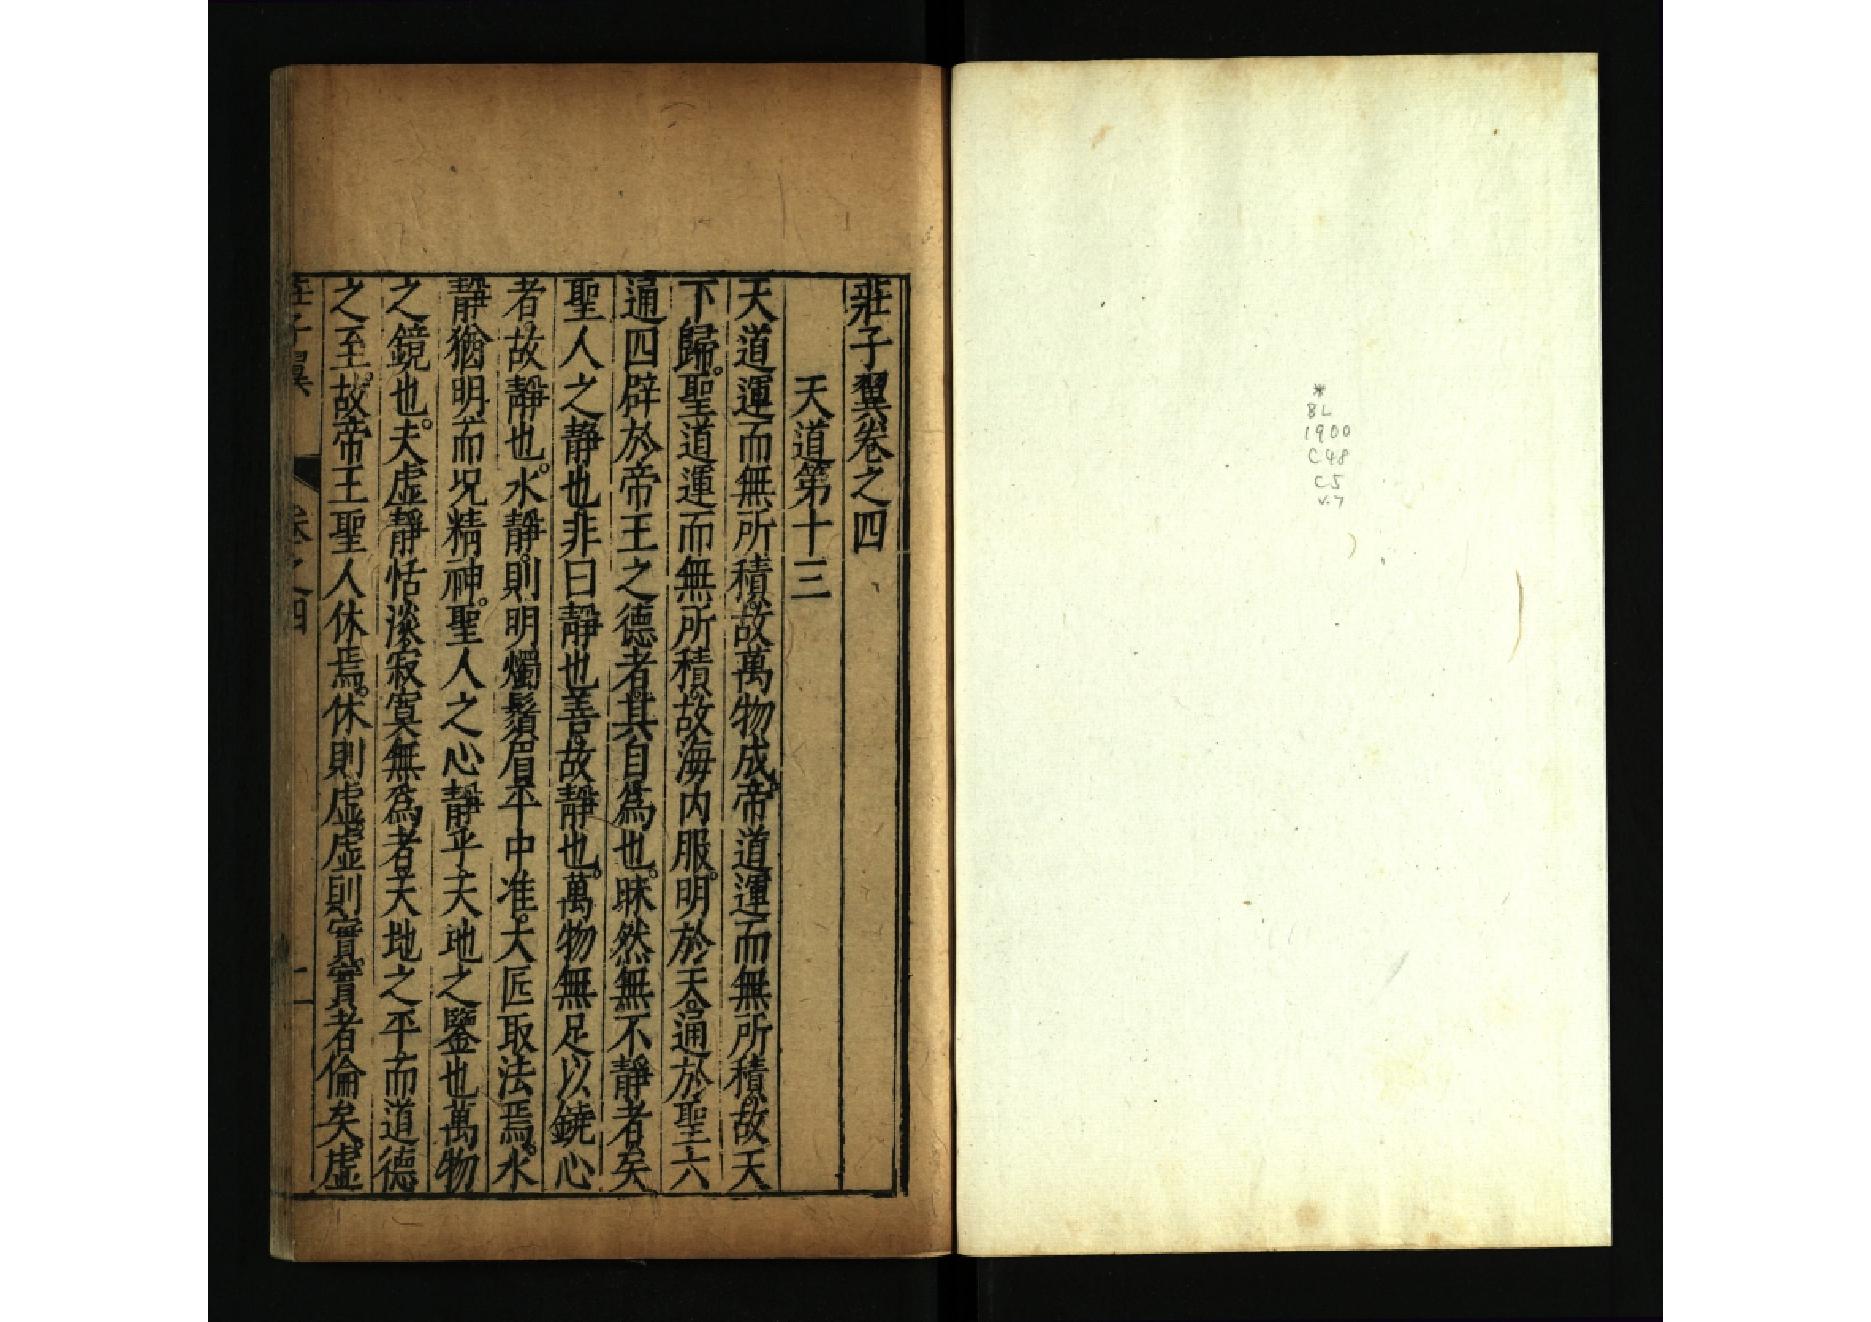 *
BL
1900
C48
C5
v.7
莊子翼卷之四
天道第十三
天道運而無所積。故萬物成。帝道運而無所積。故天
下歸。聖道運而無所積。故海内服。明於天。通於聖。六
通四辟於帝王之德者。其自爲也。昧然無不靜者矣
聖人之静也。非曰靜也善。故靜也。萬物無足以鐃心
者。故靜也。水靜。則明。燭鬚眉。平中准。大匠取法焉。水
靜猶明。而况精神。聖人之心靜乎。天地之鑒也。萬物
之鏡也。夫虛靜恬淡寂寞無爲者。天地之平。而道德
之至。故帝王聖人休焉。休則虛。虛則實。實者倫矣。虛
莊子翼 卷之四 一